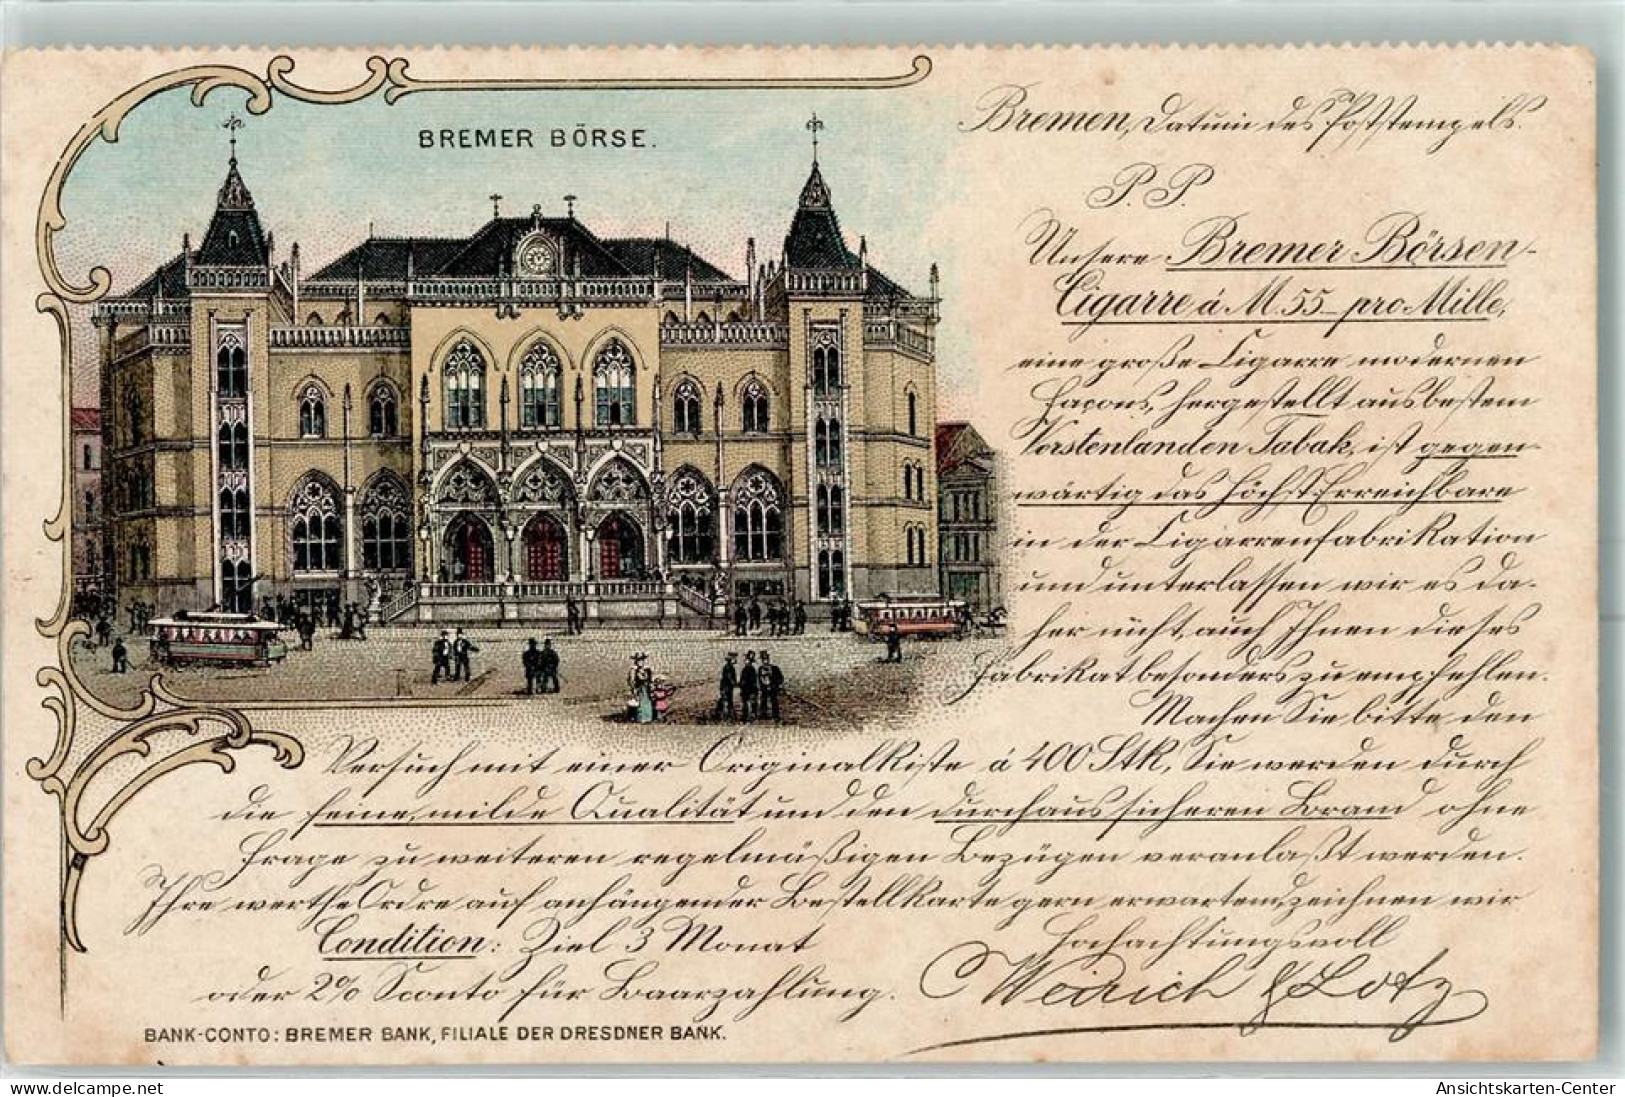 BREMER BÖRSE.
Bremen, Datum des Poststempels.
P. P.
Unsere Bremer Börsen-
Cigarre á M. 55_ pro Mille,
eine große Cigarre modernen
Façons, hergestellt aus bestem
Vorstenlanden Tabak, ist gegen-
wärtig das höchst Erreichbare
in der Cigarrenfabrikation
und unterlassen wir es da-
her nicht, auch Ihnen dieses
Fabrikat besonders zu empfehlen.
Machen Sie bitte den
Versuch mit einer Originalkiste á 400 Stk, Sie werden durch
die feine, milde Qualität und den durchaus sicheren Brand ohne
Frage zu weiteren regelmäßigen Bezügen veranlaßt werden.
Ihre werthe Ordre auf anhängender Bestellkarte gern erwartend, zeichnen wir
Condition: Ziel 3 Monat
Hochachtungsvoll
oder 2% Sconto für Baarzahlung.
Weirich & Lotz
BANK-CONTO: BREMER BANK, FILIALE DER DRESDNER BANK.
www.delcampe.net
Ansichtskarten-Center